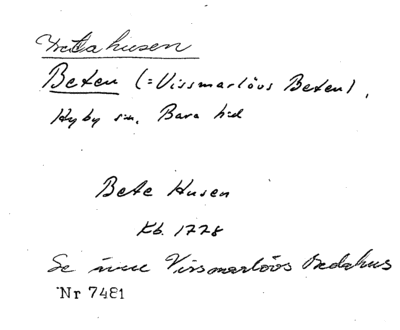 Beten (= Vissmarlövs Beten),
Hyby sn. Bara hd
Bete Husen
Kb. 1728
Se även Vissmarlövs
Nr 7481